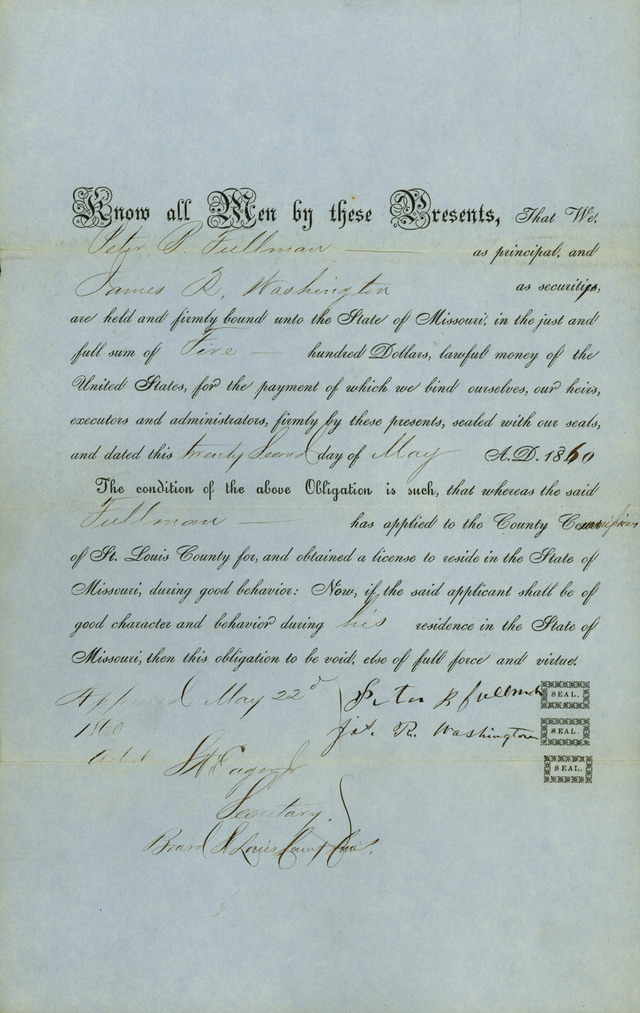 Know all Men by these Presents, That We,
Peter P. Fullman as principal, and
James R. Washington as securities,
are held and firmly bound unto the State of Missouri, in the just and
full sum of Five hundred Dollars, lawful money of the
United States, for the payment of which we bind ourselves, our heirs,
executors and administrators, firmly by these presents, sealed with our seals,
and dated this twenty Second day of May A.D. 1860
The condition of the above Obligation is such, that whereas the said
Fullman has applied to the County
of St. Louis County for, and obtained a license to reside in the State of
Missouri, during good behavior: Now, if the said applicant shall be of
good character and behavior during his residence in the State of
Missouri, then this obligation to be void, else of full force and virtue.
Approved May 22d
1860
Peter fullman SEAL.
Jas. R. Washington SEAL.
SEAL.
Secretary
Board St Louis